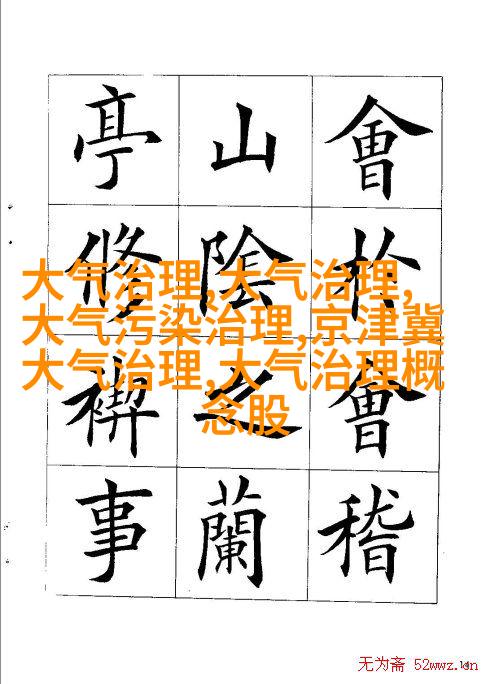 會於會稽
山陰之蘭
亭脩禊事
大气治理,大气治理,
大气污染治理,京津冀
大气治理,大气治理概
念股
无为斋 52wwz.cn